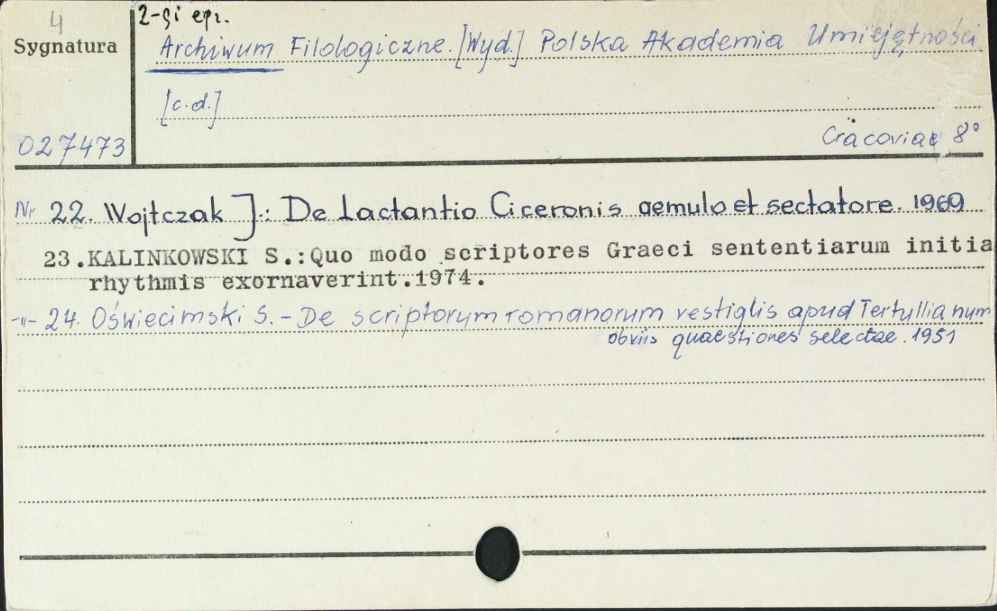 4
2-gi egz.
Sygnatura
Archiwum Filologiczne. [Wyd.] Polska Akademia Umiejętności
[c.d.]
027473
Cracoviae 8°
Nr 22. Wojtczak J.: De Lactantio Ciceronis aemulo et sectatore. 1969
23.KALINKOWSKI S.:Quo modo scriptores Graeci sententiarum initia
rhythmis exornaverint.1974.
-"- 24. Oświecimski S. - De scriptorum romanorum vestigiis apud Tertullianum
obviis quaestiones selectae. 1951